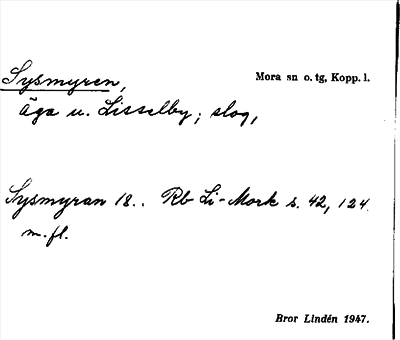 Sysmyren,
Mora sn o. tg, Kopp. l.
äga u. Lisselby; slog,
Sysmyran 18.. Rb Li-Mork s. 42, 124
m. fl.
Bror Lindén 1947.